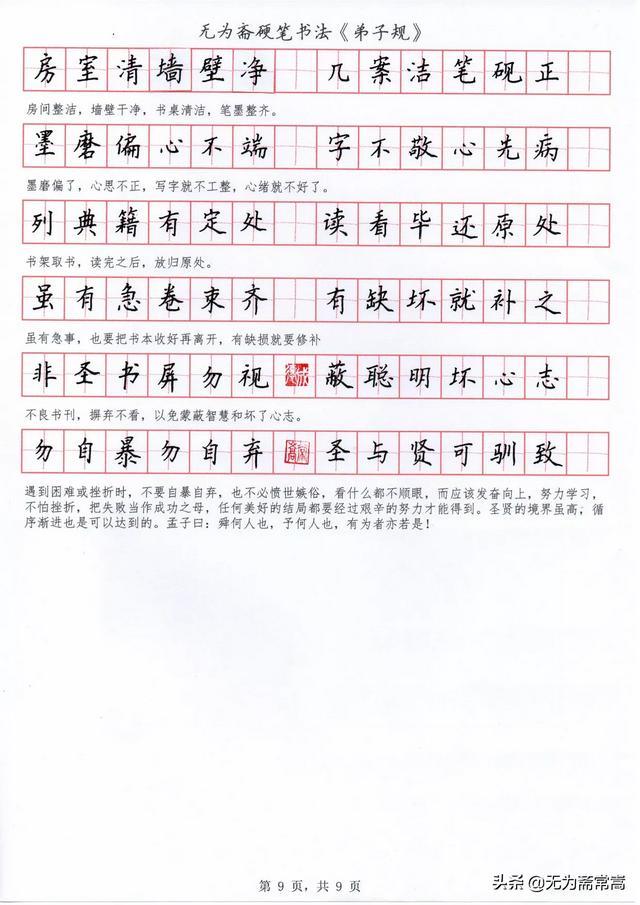 无为斋硬笔书法《弟子规》
房室清墙壁净 几案洁笔砚正
房间整洁，墙壁干净，书桌清洁，笔墨整齐。
墨磨偏心不端 字不敬心先病
墨磨偏了，心思不正，写字就不工整，心绪就不好了。
列典籍有定处 读看毕还原处
书架取书，读完之后，放归原处。
虽有急卷束齐 有缺坏就补之
虽有急事，也要把书本收好再离开，有缺损就要修补
非圣书屏勿视 蔽聪明坏心志
不良书刊，摒弃不看，以免蒙蔽智慧和坏了心志。
勿自暴勿自弃 圣与贤可驯致
遇到困难或挫折时，不要自暴自弃，也不必愤世嫉俗，看什么都不顺眼，而应该发奋向上，努力学习，
不怕挫折，把失败当作成功之母，任何美好的结局都要经过艰辛的努力才能得到。圣贤的境界虽高，循
序渐进也是可以达到的。孟子曰：舜何人也，予何人也，有为者亦若是！
第 9 页，共 9 页
头条 @无为斋常嵩